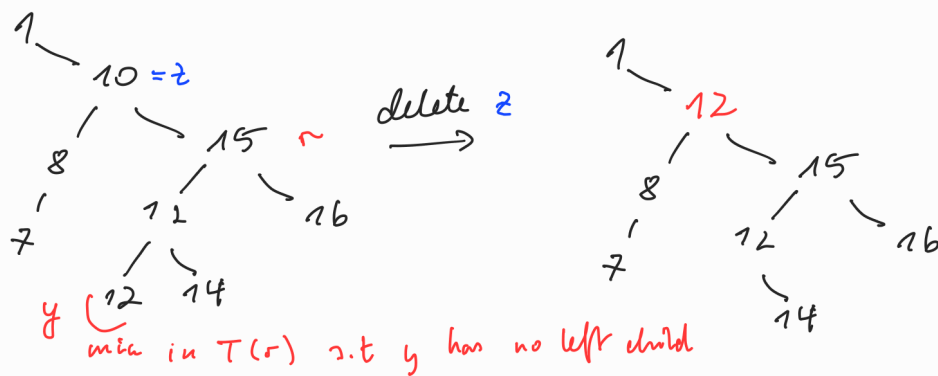 1
10 = z
8
15 r
7
12
16
12
14
y
min in T(r) s.t y has no left child
delete z
1
12
8
15
7
12
16
14